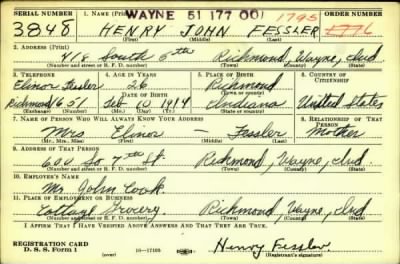 WAYNE 51 177 001
SERIAL NUMBER 1. NAME (Print) 1795 ORDER NUMBER
3848 HENRY JOHN FESSLER 1776
(First) (Middle) (Last)
2. ADDRESS (Print)
418 South 5th Richmond, Wayne, Ind
(Number and street or R. F. D. number) (Town) (County) (State)
3. TELEPHONE 4. AGE IN YEARS 5. PLACE OF BIRTH 6. COUNTRY OF CITIZENSHIP
Elinor Fessler 26 Richmond
DATE OF BIRTH (Town or county)
Richmond 1631 Feb 10 1914 Indiana United States
(Exchange) (Number) (Mo.) (Day) (Yr.) (State or country)
7. NAME OF PERSON WHO WILL ALWAYS KNOW YOUR ADDRESS 8. RELATIONSHIP OF THAT PERSON
Mrs Elinor — Fessler Mother
(Mr., Mrs., Miss) (First) (Middle) (Last)
9. ADDRESS OF THAT PERSON
600 So 7th St. Richmond, Wayne, Ind.
(Number and street or R. F. D. number) (Town) (County) (State)
10. EMPLOYER'S NAME
Mr. John Cook.
11. PLACE OF EMPLOYMENT OR BUSINESS
Cottage Grocery. Richmond, Wayne, Ind
(Number and street or R. F. D. number) (Town) (County) (State)
I AFFIRM THAT I HAVE VERIFIED ABOVE ANSWERS AND THAT THEY ARE TRUE.
REGISTRATION CARD
D. S. S. Form 1 (over) 16—17105 Henry Fessler
(Registrant's signature)